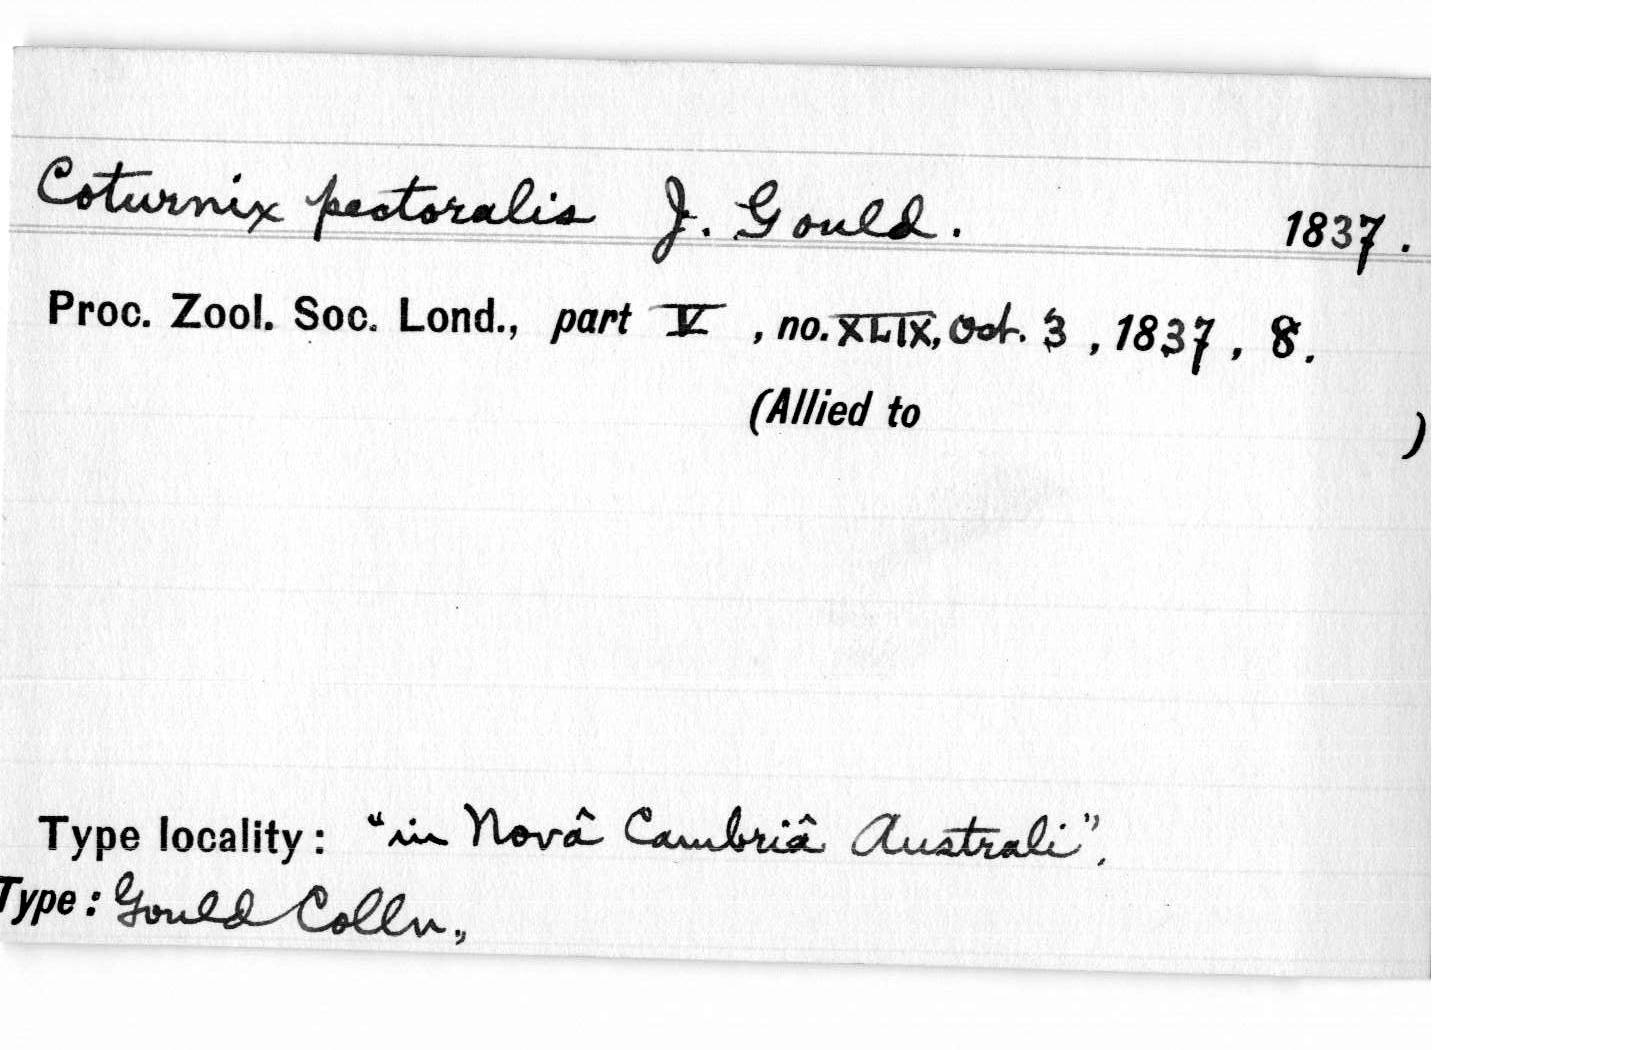 Coturnix pectoralis J. Gould. 1837.
Proc. Zool. Soc. Lond., part V, no. XLIX, Oct. 3, 1837, 8.
(Allied to )
Type locality: "in Novâ Cambriâ Australi".
Type: Gould Colln.,